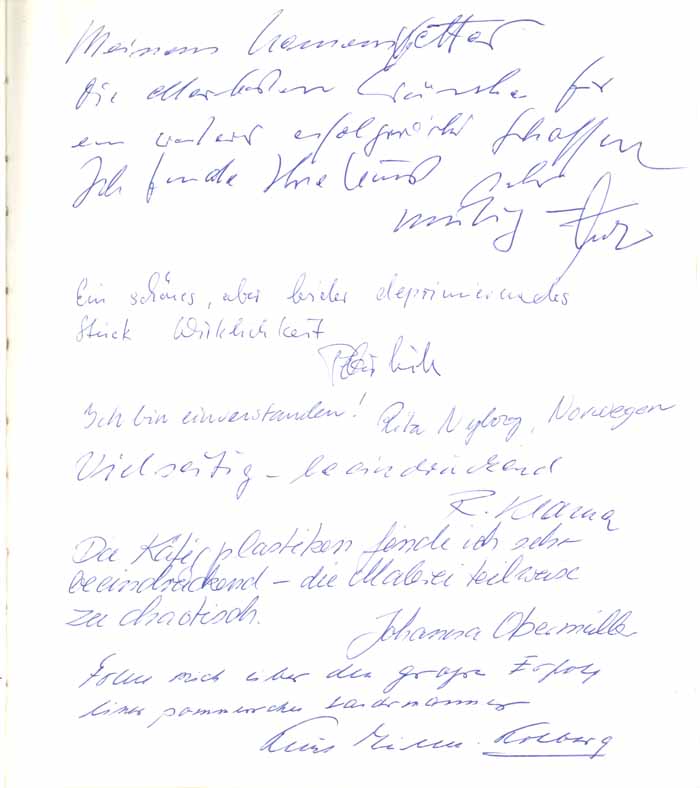 Meinem Namensvetter
die allerbesten Wünsche für
ein weiteres erfolgreiches Schaffen
Ich finde Ihre Kunst sehr
mutig
Ein schönes, aber leider deprimierendes
Stück Wirklichkeit
Ich bin einverstanden! Rita Nyborg, Norwegen
Vielseitig – beeindruckend
R. Krama
Die Käfigplastiken finde ich sehr
beeindruckend – die Malerei teilweise
zu chaotisch.
Johanna Obermüller
Freue mich über den großen Erfolg
eines pommerschen Landsmannes
Kolberg